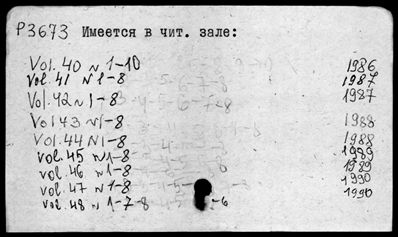 P3673 Имеется в чит. зале:
Vol. 40 N 1-10 1986
Vol. 41 N 1-8 1987
Vol. 42 N 1-8 1987
Vol 43 N 1-8 1988
Vol. 44 N 1-8 1988
Vol. 45 N 1-8 1989
Vol. 46 N 1-8 1989
Vol. 47 N 1-8 1990
Vol. 48 N 1-7-8 1990